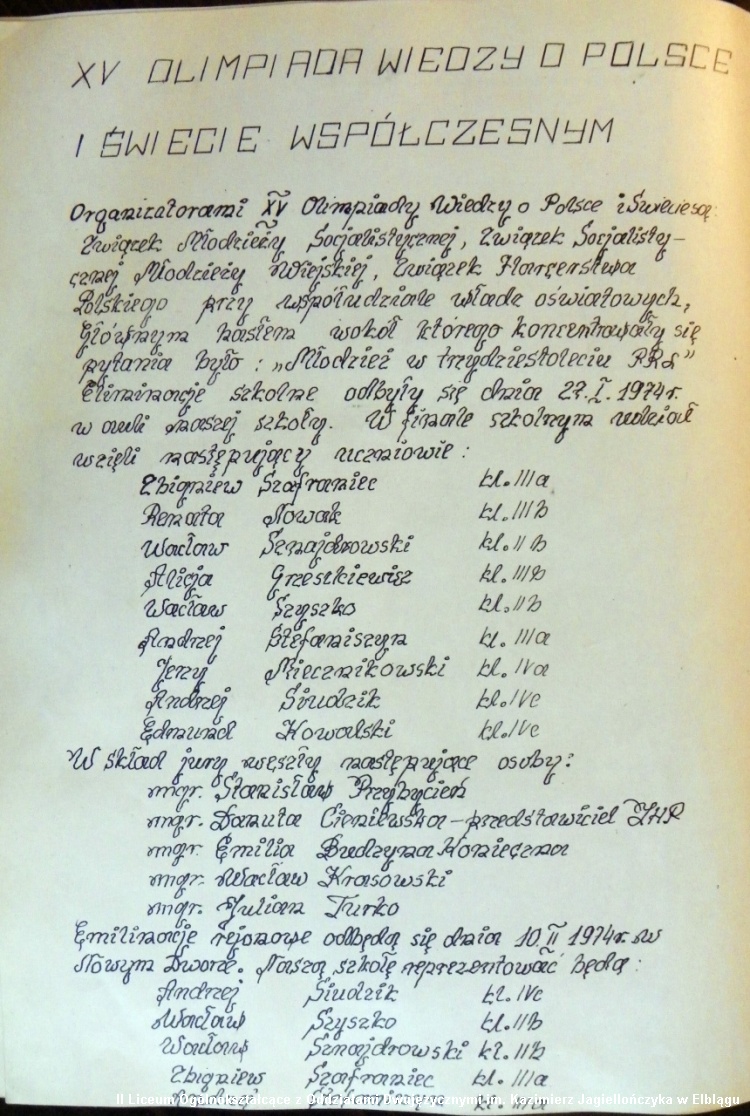 XV OLIMPIADA WIEDZY O POLSCE
I ŚWIECIE WSPÓŁCZESNYM
Organizatorami XV Olimpiady Wiedzy o Polsce i Świecie są:
Związek Młodzieży Socjalistycznej, Związek Socjalisty-
cznej Młodzieży Wiejskiej, Związek Harcerstwa
Polskiego przy współudziale władz oświatowych.
Głównym hasłem wokół którego koncentrowały się
pytania było: „Młodzież w trzydziestoleciu PRL"
Eliminacje szkolne odbyły się dnia 27.I.1974r.
w auli naszej szkoły. W finale szkolnym udział
wzięli następujący uczniowie:
Zbigniew Szafraniec kl. IIIa
Renata Nowak kl. III b
Wacław Sznajdrowski kl. II b
Alicja Grzeszkiewisz kl. III b
Wacław Szyszko kl. II b
Andrzej Stefaniszyn kl. IIIa
Jerzy Miecznikowski kl. IVa
Andrzej Siudzik kl. IVc
Edmund Kowalski kl. IVc
W skład jury weszły następujące osoby:
mgr. Stanisław Przybycień
mgr. Danuta – przedstawiciel ZHP
mgr. Emilia Budzyna Konieczna
mgr. Wacław Krasowski
mgr. Julian Turko
Emilinacje rejonowe odbędą się dnia 10.II 1974r. w
Nowym Dworze. Naszą szkołę reprezentować będą:
Andrzej Siudzik kl. IVc
Wacław Szyszko kl. II b
Wacław Sznajdrowski kl. II b
Zbigniew Szafraniec kl. III a
II Liceum Ogólnokształcące z Oddziałami Dwujęzycznymi im. Kazimierz Jagiellończyka w Elblągu